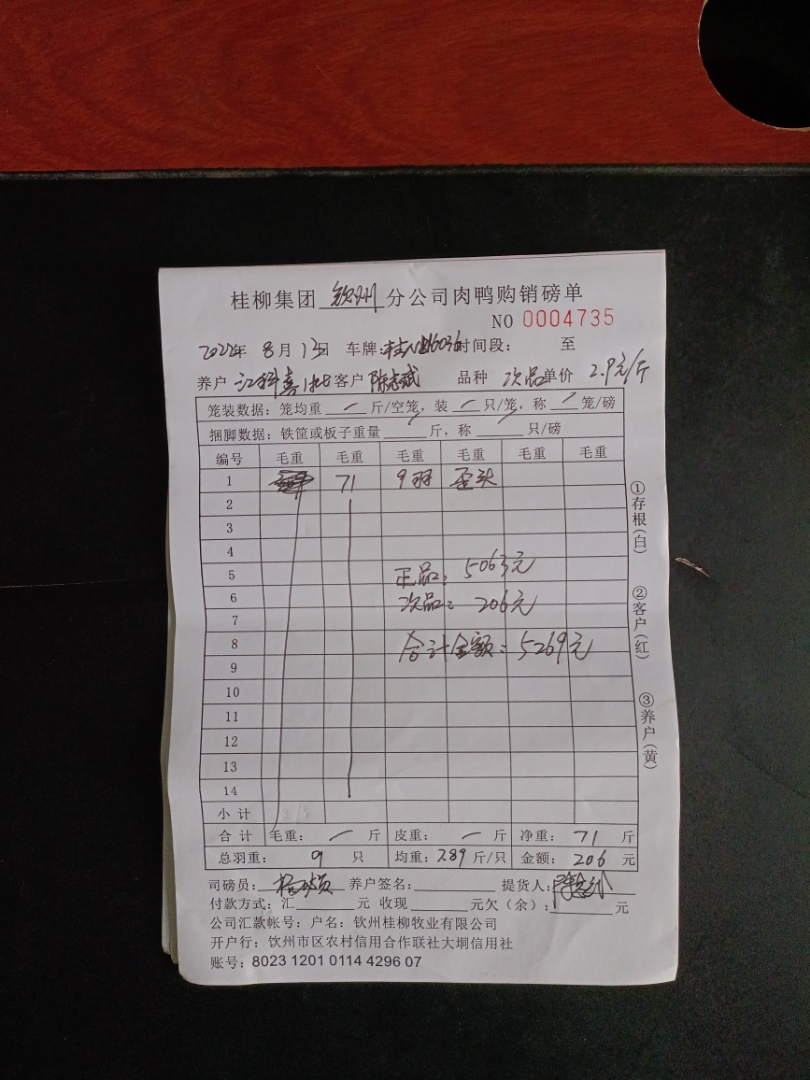 桂柳集团 钦州 分公司肉鸭购销磅单
NO 0004735
2022年 8月 13日 车牌: 时间段: 至
养户 客户 陈志斌 品种 次品 单价 2.9元/斤
笼装数据: 笼均重 一 斤/空笼, 装 一 只/笼, 称 一 笼/磅
捆脚数据: 铁筐或板子重量 斤, 称 只/磅
编号 毛重 毛重 毛重 毛重 毛重 毛重
1 71 9羽 歪头
2
3
4
5 正品: 5063元
6 次品: 206元
7
8 合计金额: 5269元
9
10
11
12
13
14
小计
合计 毛重: 一 斤 皮重: 一 斤 净重: 71 斤
总羽重: 9 只 均重: 7.89 斤/只 金额: 206 元
司磅员: 养户签名: 提货人:
付款方式: 汇 元 收现 元欠(余): 元
公司汇款帐号: 户名: 钦州桂柳牧业有限公司
开户行: 钦州市区农村信用合作联社大垌信用社
账号: 8023 1201 0114 4296 07
①存根(白)
②客户(红)
③养户(黄)